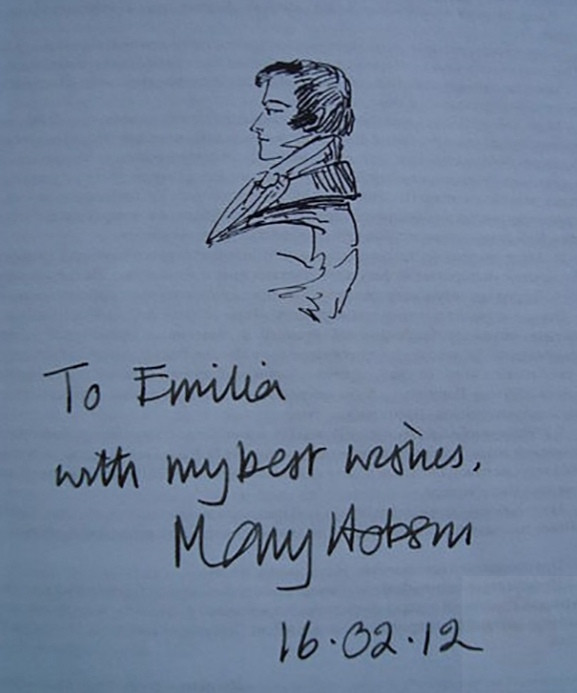 To Emilia
with my best wishes,
Mary Hobson
16.02.12